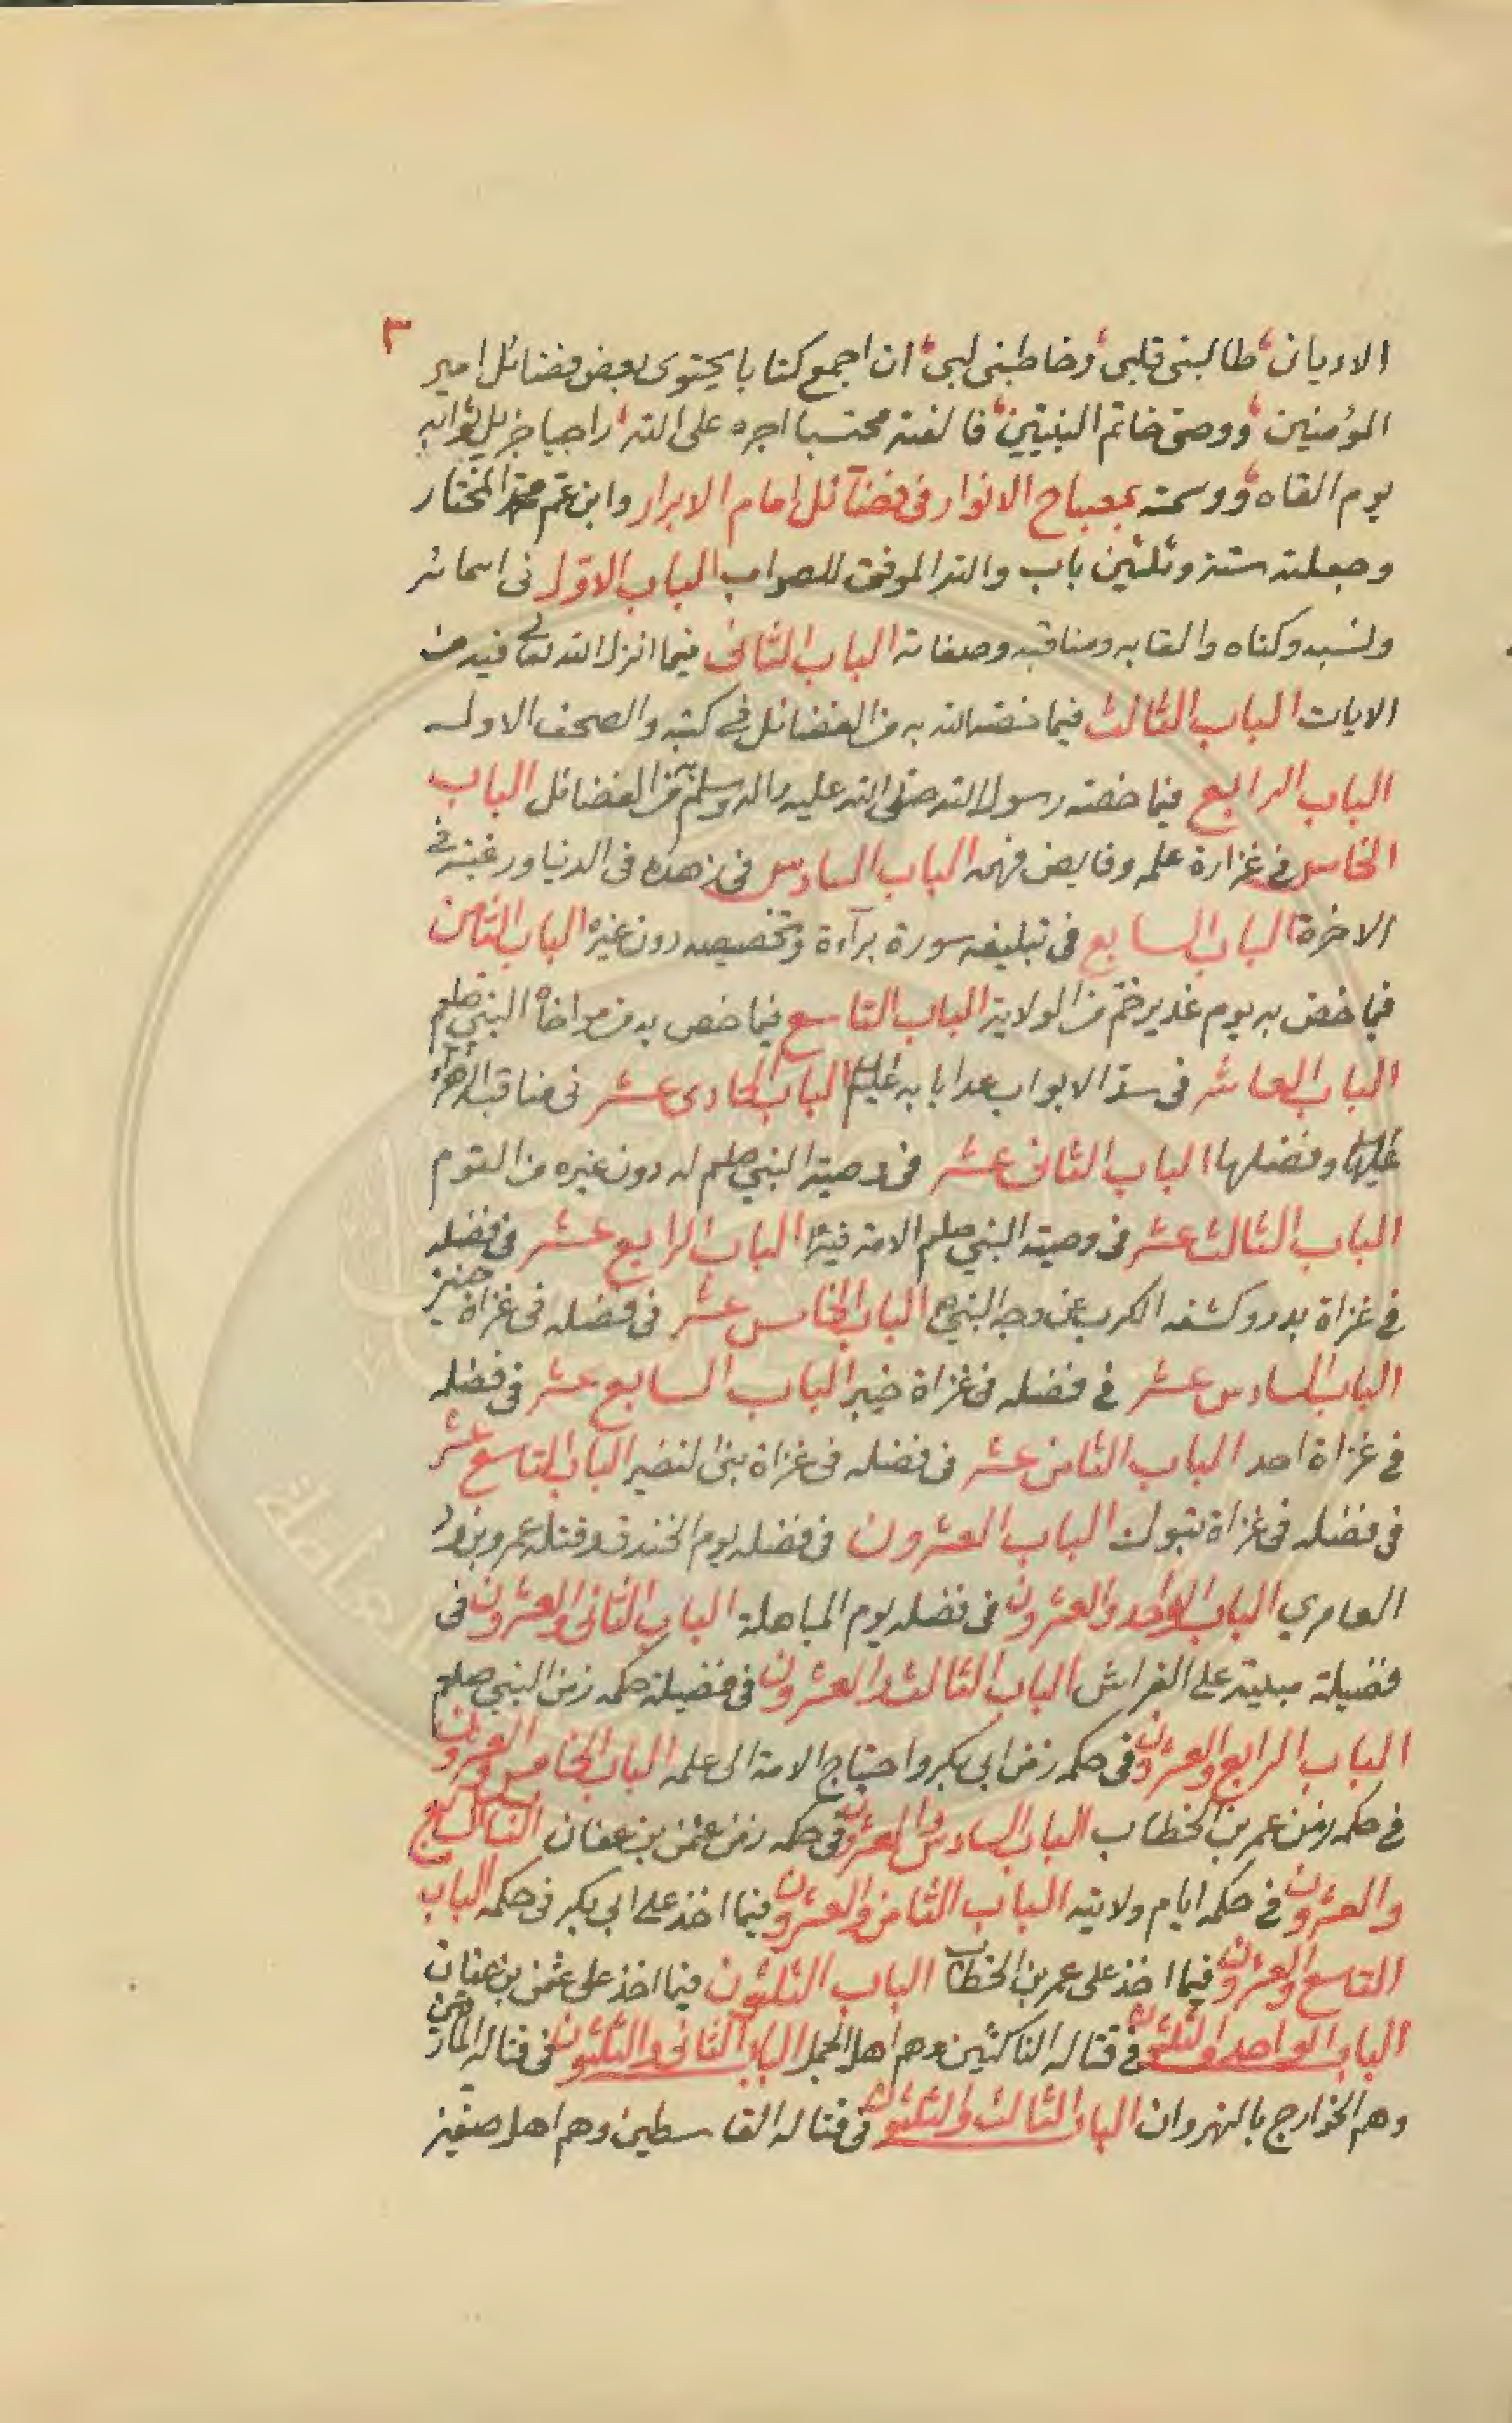 ٣
الاديان، طالبنى قلبى، وخاطبنى لبى، ان اجمع كتابا يحتوى بعض فضائل امير
المؤمنين، ووصى خاتم النبيين، فالفته محتسبا اجره على الله، راجيا جزيل ثوابه
يوم القاه، ووسمته بمصباح الانوار فى فضآئل امام الابرار وابن عم محمد المختار
وجعلته ستة وثلثين باب والله الموفق للصواب الباب الاول فى اسمائه
ونسبه وكناه والقابه ومناقبه وصفاته الباب الثانى فيما انزل الله تعالى فيه من
الايات الباب الثالث فيما خصه الله به من الفضائل فى كتبه والصحف الاولى
الباب الرابع فيما خصه رسول الله صلى الله عليه واله وسلم به من الفضائل الباب
الخامس فى غزارة علمه وفايض فهمه الباب السادس فى زهده فى الدنيا ورغبته فى
الاخرة الباب السابع فى تبليغه سورة برآءة وتخصيصه دون غيره الباب الثامن
فيما خص به يوم غدير خم من الولاية الباب التاسع فيما خص به من مواخاة النبى صلعم
الباب العاشر فى سد الابواب عدا بابه عليه السلام الباب الحادى عشر فى مناقب الزهراء
عليها السلام وفضلها الباب الثانى عشر فى وصية النبى صلعم له دون غيره من القوم
الباب الثالث عشر فى وصية النبى صلعم الامة فيه الباب الرابع عشر فى فضله
فى غزاة بدر وكشفه الكرب عن وجه النبى ص الباب الخامس عشر فى فضله فى غزاة حنين
الباب السادس عشر فى فضله فى غزاة خيبر الباب السابع عشر فى فضله
فى غزاة احد الباب الثامن عشر فى فضله فى غزاة بنى النضير الباب التاسع عشر
فى فضله فى غزاة تبوك الباب العشرون فى فضله يوم الخندق وقتله عمرو بن ود
العامري الباب الواحد والعشرون فى فضله يوم المباهلة الباب الثانى والعشرون فى
فضيلة مبيته على الفراش الباب الثالث والعشرون فى فضيلة حكمه زمن النبى صلعم
الباب الرابع والعشرون فى حكمه زمن ابى بكر واحتياج الامة الى علمه الباب الخامس والعشرون
فى حكمه زمن عمر بن الخطاب الباب السادس والعشرون فى حكمه زمن عثمن بن عفان الباب السابع
والعشرون فى حكمه ايام ولايته الباب الثامن والعشرون فيما اخذ على ابى بكر فى حكمه الباب
التاسع والعشرون فيما اخذ على عمر بن الخطاب الباب الثلثون فيما اخذ على عثمن بن عفان
الباب الواحد والثلثون فى قتاله الناكثين وهم اهل الجمل الباب الثانى والثلثون فى قتاله المارقين
وهم الخوارج بالنهروان الباب الثالث والثلثون فى قتاله القاسطين وهم اهل صفين